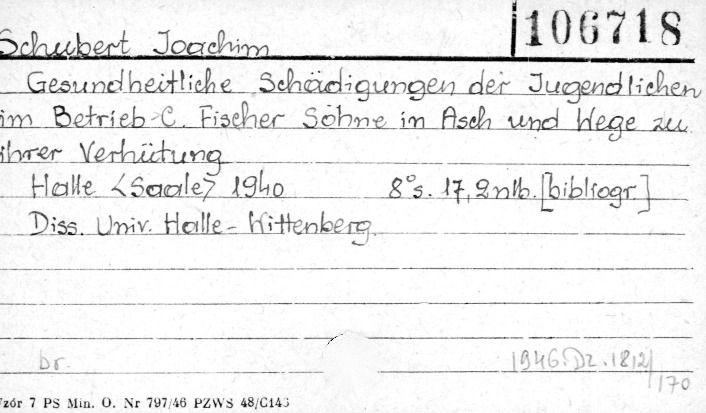 106718
Schubert Joachim
Gesundheitliche Schädigungen der Jugendlichen
im Betrieb C. Fischer Söhne in Asch und Wege zu
ihrer Verhütung
Halle <Saale> 1940 8° s. 17, 2 nlb. [bibliogr.]
Diss. Univ. Halle-Wittenberg.
br. 1946.Dz.1812/170
Wzór 7 PS Min. O. Nr 797/46 PZWS 48/C143